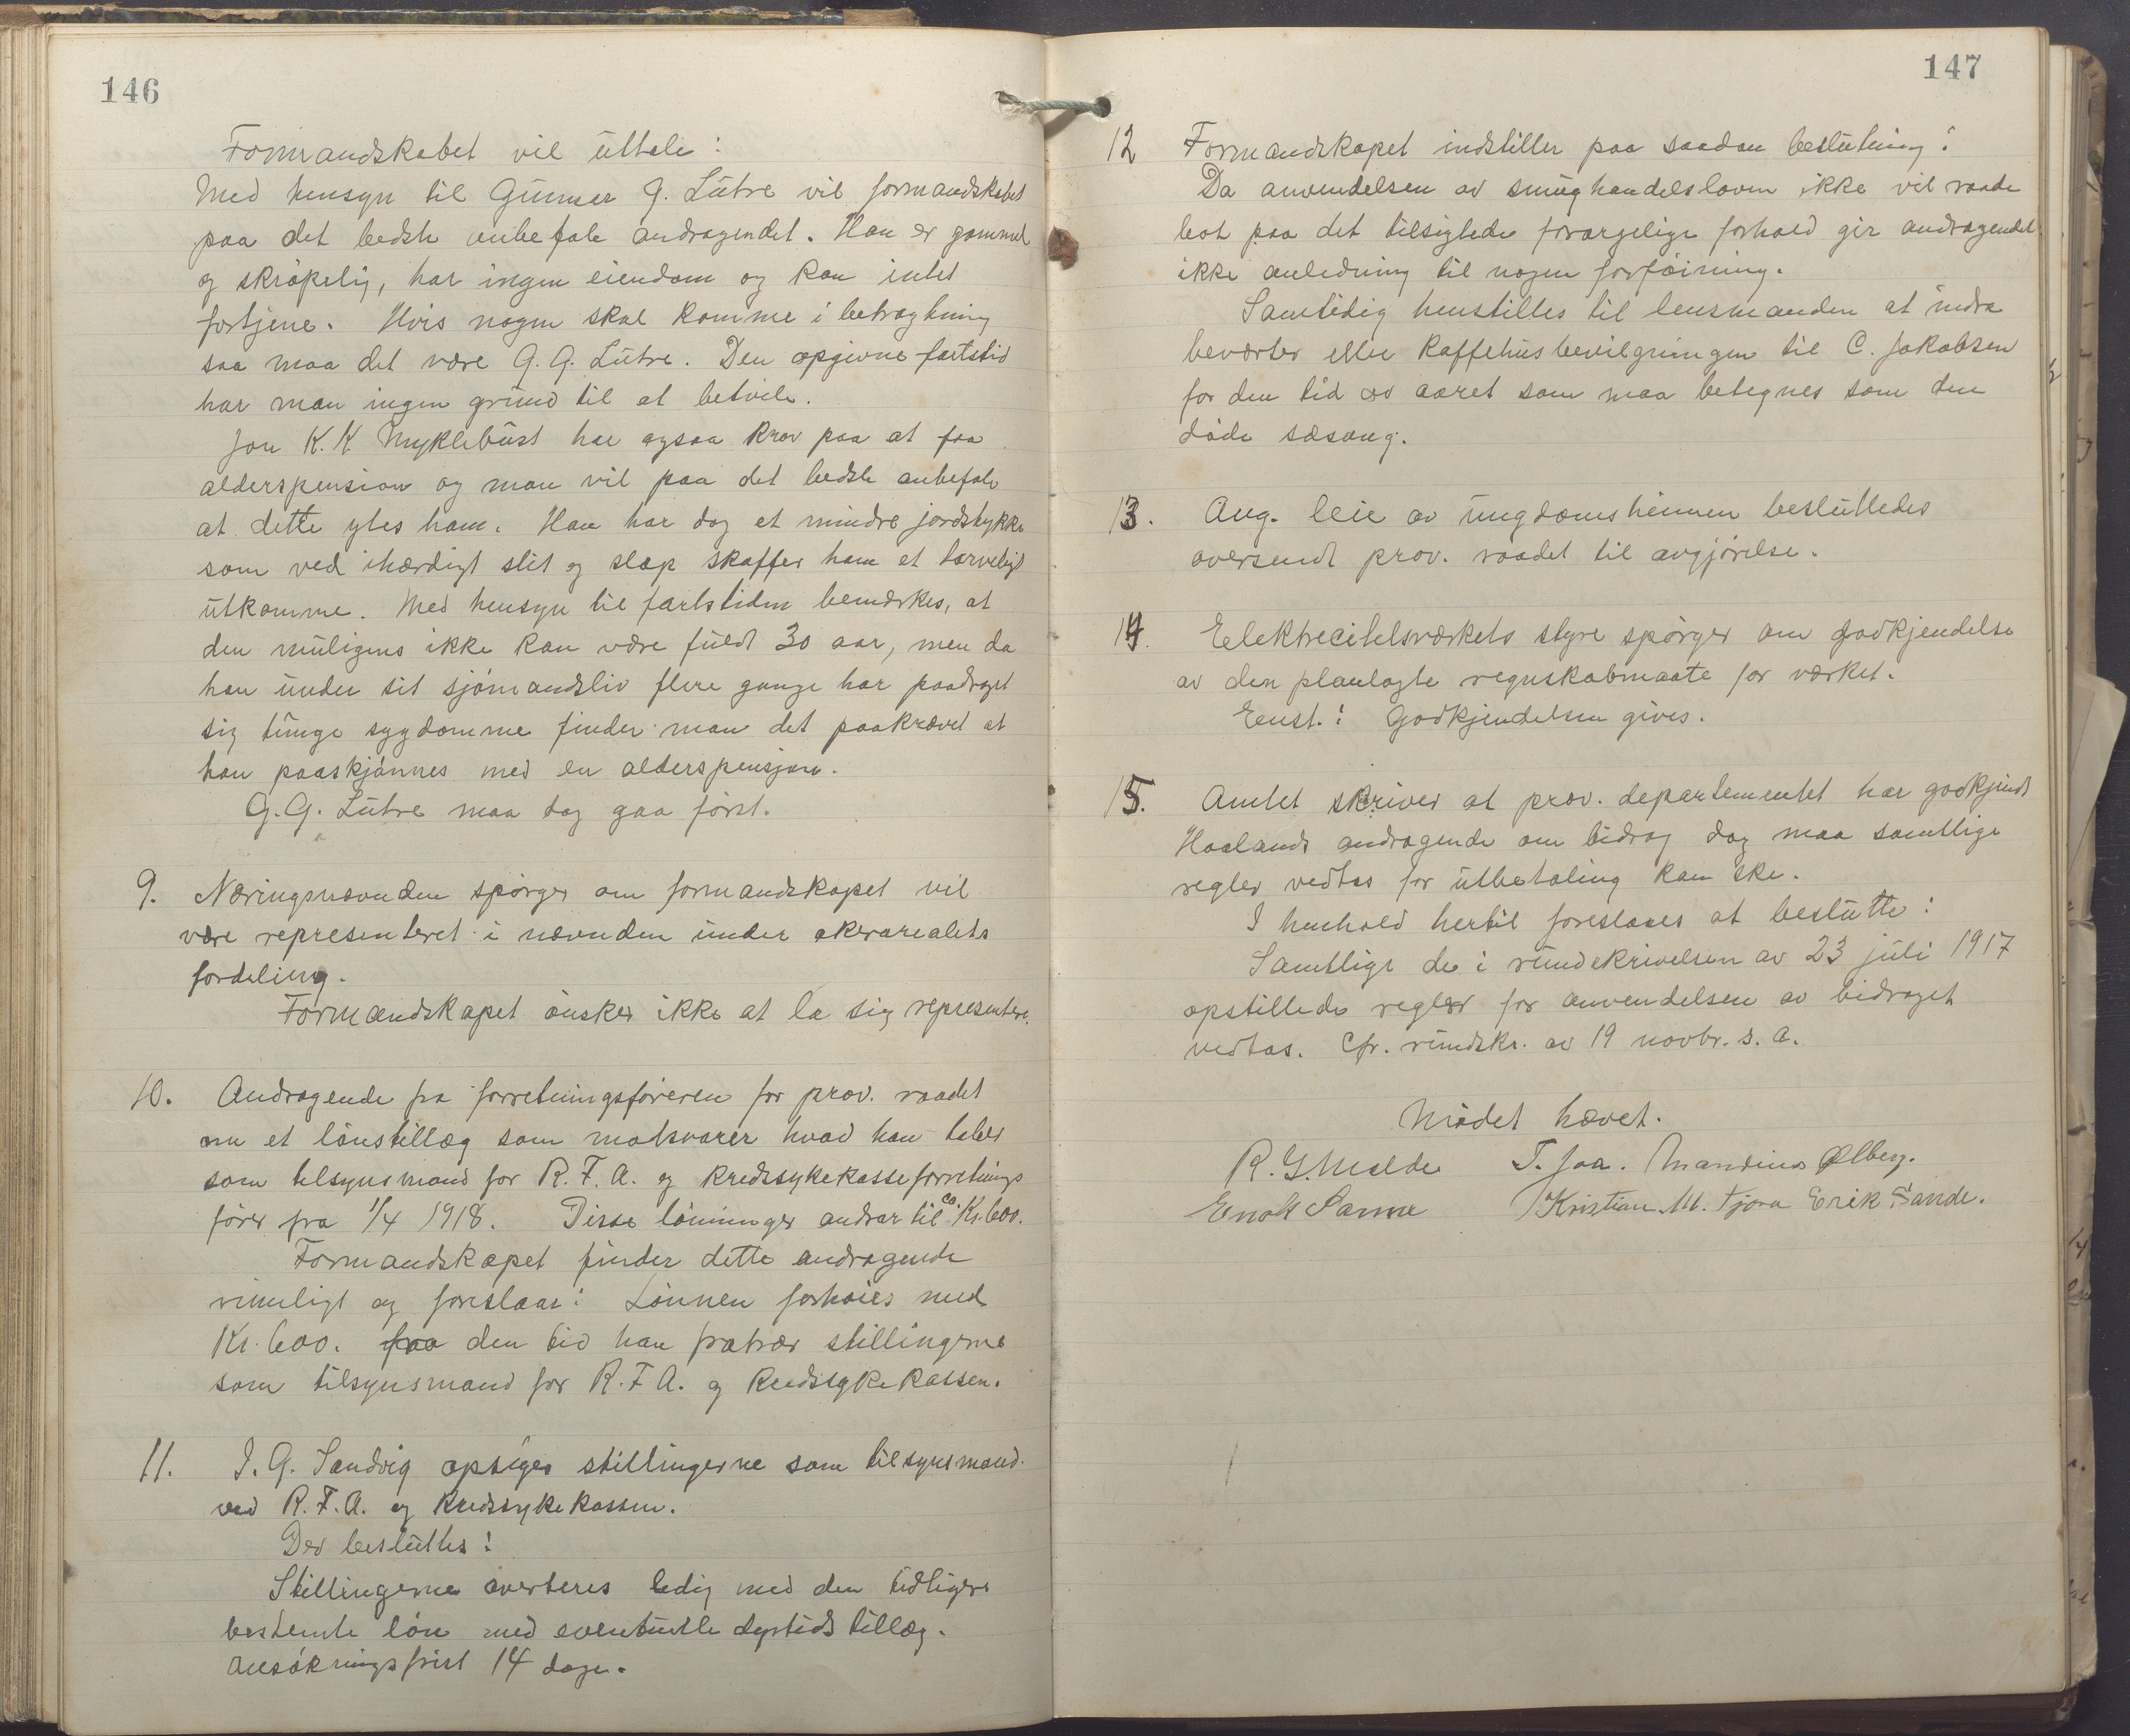 146
Formandskabet vil uttale:
Med hensyn til Gunnar G. Lutre vil formandskabet
paa det bedste anbefale andragendet. Han er gammel
og skrøpelig, har ingen eiendom og kan intet
fortjene. Hvis nogen skal komme i betragtning
saa maa det være G. G. Lutre. Den opgivne fartstid
har man ingen grund til at betvile.
Jon K. K Myklebust har ogsaa krav paa at faa
alderspension og man vil paa det bedste anbefale
at dette ytes ham. Han har dog et mindre jordstykke
som ved ihærdigt slit og slæp skaffer ham et tarveligt
utkomme. Med hensyn til fartstiden bemærkes, at
den muligens ikke kan være fuldt 30 aar, men da
han under sit sjømandsliv flere gange har paadraget
sig tunge sygdomme finder man det paakrævet at
han paaskjønnes med en alderspensjon.
G. G. Lutre maa dog gaa først.
9. Næringsnævnden spørger om formandskapet vil
være representeret i nævnden under akerarealets
fordeling.
Formandskapet ønsker ikke at la sig representere.
10. Andragende fra forretningsføreren for prov. raadet
om et lønstillæg som motsvarer hvad han taber
som tilsynsmand for R. F. A. og kredssykekasseforretnings
fører fra 1/4 1918. Disse lønninger andrar til ca. Kr. 600.
Formandskapet finder dette andragende
rimeligt og foreslaar: Lønnen forhøies med
Kr. 600. fra den tid han fratrær stillingerne
som tilsynsmand for R. F. A. og kredssykekassen.
11. I. G. Sandvig opsiges stillingerne som tilsynsmand
ved R. F. A. og kredssykekassen.
Der besluttes:
Stillingerne averteres ledig med den tidligere
bestemte løn med eventuelle dyrtidstillæg.
Ansøkningsfrist 14 dage.
147
12 Formandskapet indstiller paa saadan beslutning:
Da anvendelsen av smughandelsloven ikke vil raade
bot paa det tilsigtede forargelige forhold gir andragendet
ikke anledning til nogen forføining.
Samtidig henstilles til lensmanden at indra
beværter eller kaffehusbevilgningen til C. Jakobsen
for den tid av aaret som maa betegnes som den
døde sæsong.
13. Ang. leie av ungdomsheimen besluttedes
oversendt prov. raadet til avgjørelse.
14. Elektrecitetsværkets styre spørger om godkjendelse
av den planlagte regnskabmaate for værket.
Enst.: Godkjendelsen gives.
15. Amtet skriver at prov. departementet har godkjendt
Haalands andragende om bidrag dog maa samtlige
regler vedtas før utbetaling kan ske.
I henhold hertil foreslaaes at beslutte:
Samtlige de i rundskrivelsen av 23 juli 1917
opstillede regler for anvendelsen av bidraget
vedtas. Cfr. rundskr. av 19 novbr. s. a.
Mødet hævet.
R. G. Melde T. Joa. Mandius Ølberg.
Enok Sanne Kristian. M. Tjora Erik Sande.